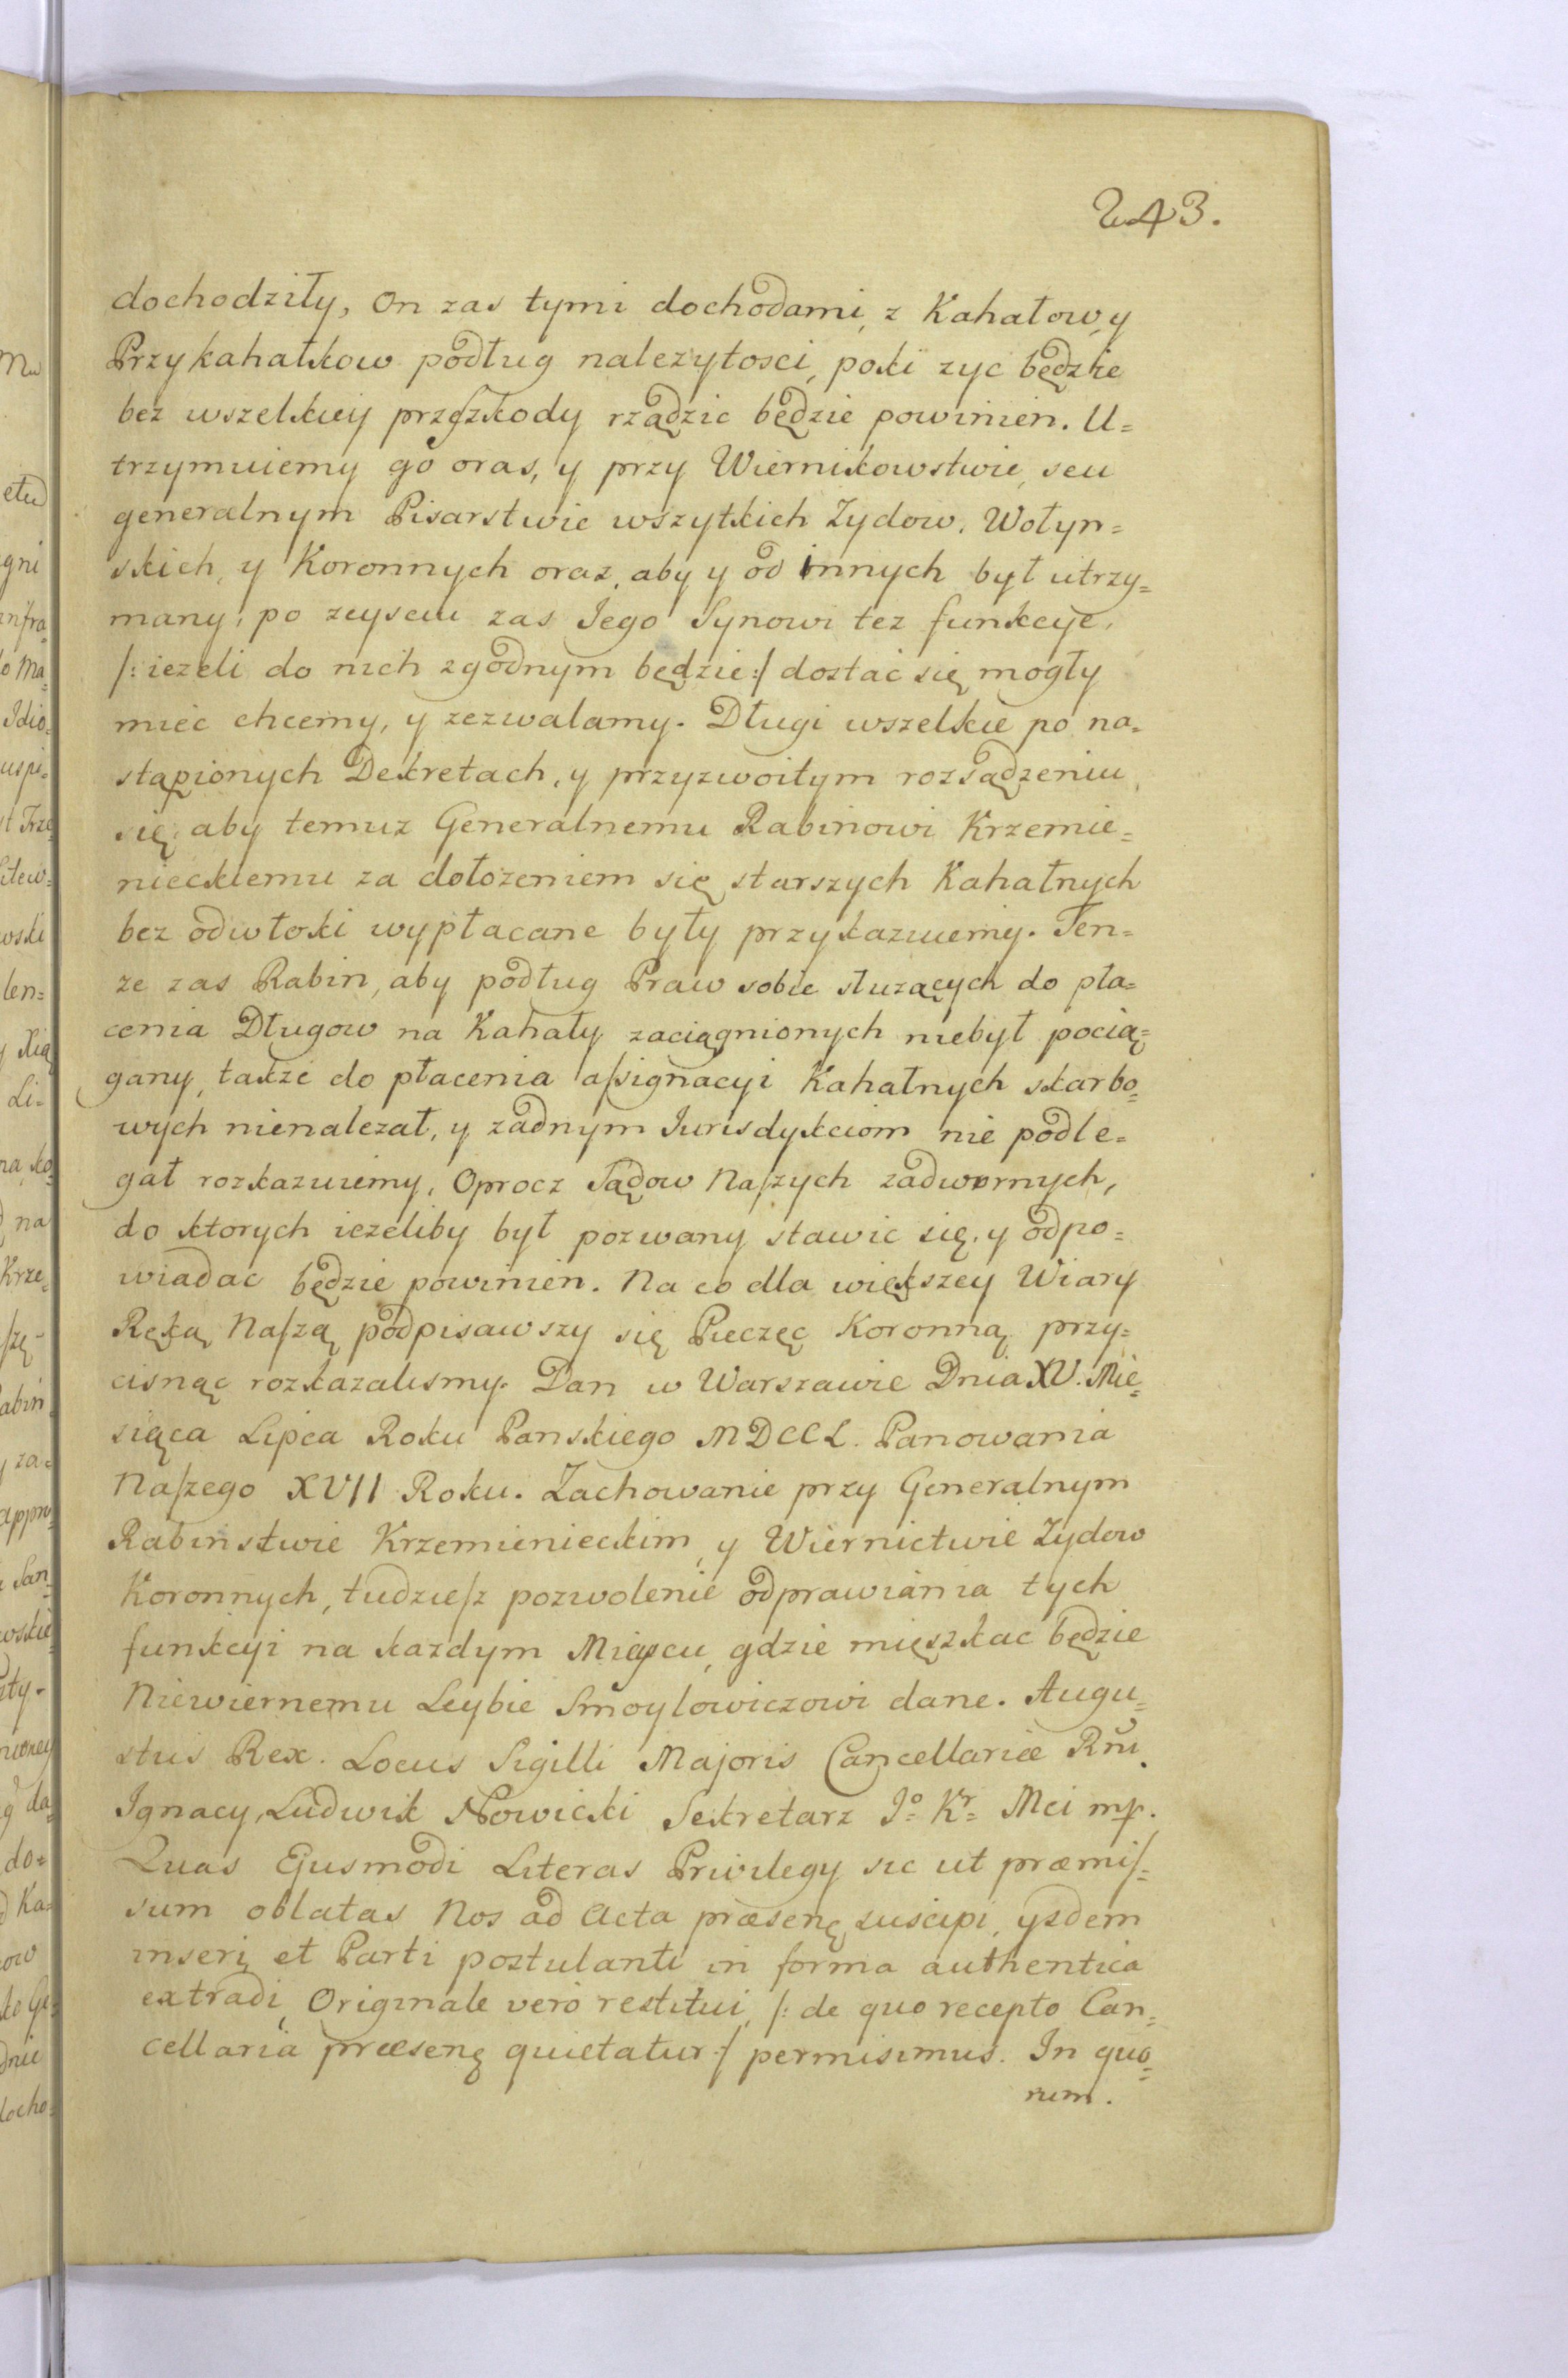 243.
dochodziły, on zas tymi dochodami, z Kahałow, y
Przykahałkow podług nalezytosci, poki zyc będzie
bez wszelkiey przeſzkody rządzic będzie powinien. U=
trzymuiemy go oras, y przy Wiernikowstwie, seu
generalnym Pisarstwie wszytkich Zydow, Wołyn=
skich, y Koronnych oraz, aby y od innych był utrzy=
many, po zeysciu zas Jego Synowi tez funkcye,
/: iezeli do nich zgodnym będzie :/ dostać się mogły
mieć chcemy, y zezwalamy. Długi wszelkie po na=
stąpionych Dekretach, y przyzwoitym rozsądzeniu
się, aby temuz Generalnemu Rabinowi Krzemie=
nieckiemu za dołozeniem się starszych Kahałnych
bez odwłoki wypłacane były przykazuiemy. Ten=
ze zas Rabin, aby podług Praw sobie słuzących do pła=
cenia Długow na Kahały zaciągnionych niebył pocią=
gany, takze do płacenia aſsignacyi Kahałnych skarbo=
wych nienalezał, y zadnym Jurisdykciom nie podle=
gał rozkazuiemy, Oprocz Sądow Naſzych zadwornych,
do ktorych iezeliby był pozwany stawic się, y odpo=
wiadac będzie powinien. Na co dla większey Wiary
Ręką Naſzą podpisawszy się Pieczęc Koronną przy=
cisnąc rozkazalismy. Dan w Warszawie Dnia XV. Mie=
siąca Lipca Roku Panskiego MDCCL. Panowania
Naſzego XVII Roku. Zachowanie przy Generalnym
Rabinstwie Krzemienieckim, y Wiernictwie Zydow
Koronnych, tudzieſz pozwolenie odprawiania tych
funkcyi na kazdym Mieyscu, gdzie mięszkac będzie
Niewiernemu Leybie Smoylowiczowi dane. Augu=
stus Rex. Locus Sigilli Majoris Cancellariæ Rñi.
Ignacy, Ludwik Nowicki Sekretarz Jº= Kr= Mci mp.
Quas Ejusmodi Literas Privilegy sic ut præmiſ=
sum oblatas Nos ad Acta præsenę suscipi, ysdem
inseri, et Parti postulanti in forma authentica
extradi, Originale vero restitui, /: de quo recepto Can=
cellaria præsenę quietatur :/ permisimus. In quo=
rum.